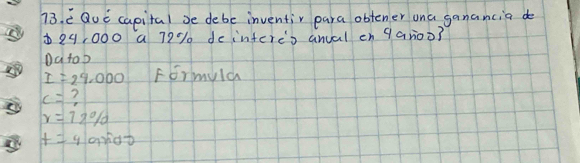 13. ¿Qué capital se debe inventir para obtener una ganancia de
$ 24,000 a 12% de interés anual en 4 años?
Datos
I = 24.000 Fórmula
C = ?
r = 12%
t = 4 años